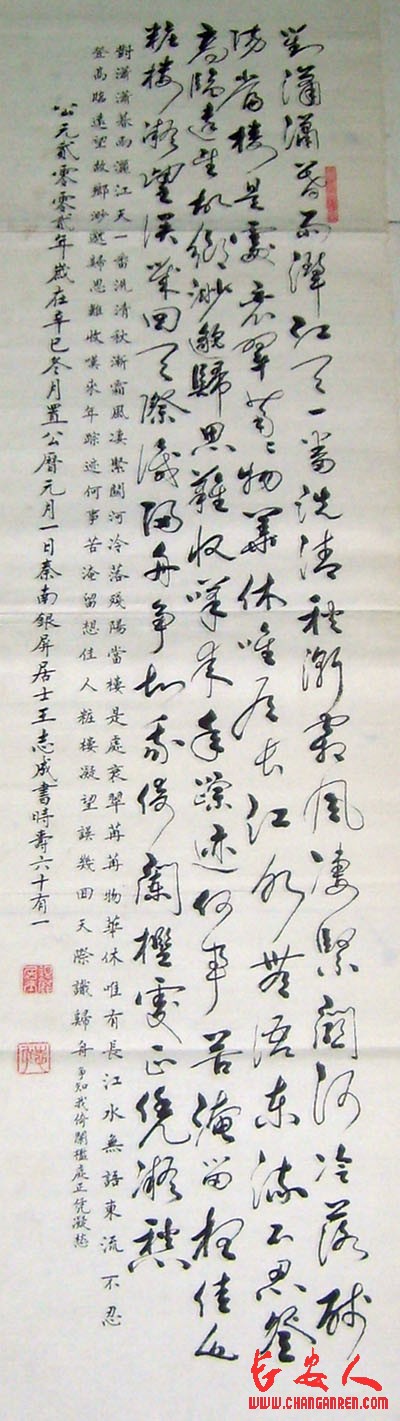 對瀟瀟暮雨灑江天一番洗清秋漸霜風凄緊關河冷落殘
陽當樓是處衰翠苒苒物華休唯有長江水無語東流不忍登
高臨遠望故鄉渺邈歸思難收嘆來年踪迹何事苦淹留想佳人
粧樓凝望誤幾回天際識歸舟爭知我倚闌檻處正凭凝愁
對瀟瀟暮雨灑江天一番洗清秋漸霜風凄緊關河冷落殘陽當樓是處衰翠苒苒物華休唯有長江水無語東流不忍
登高臨遠望故鄉渺邈歸思難收嘆來年踪迹何事苦淹留想佳人粧樓凝望誤幾回天際識歸舟爭知我倚闌檻處正凭凝愁
公元貳零零貳年歲在辛巳冬月置公曆元月一日秦南銀屏居士王志成書時壽六十有一
长安人
WWW.CHANGANREN.COM